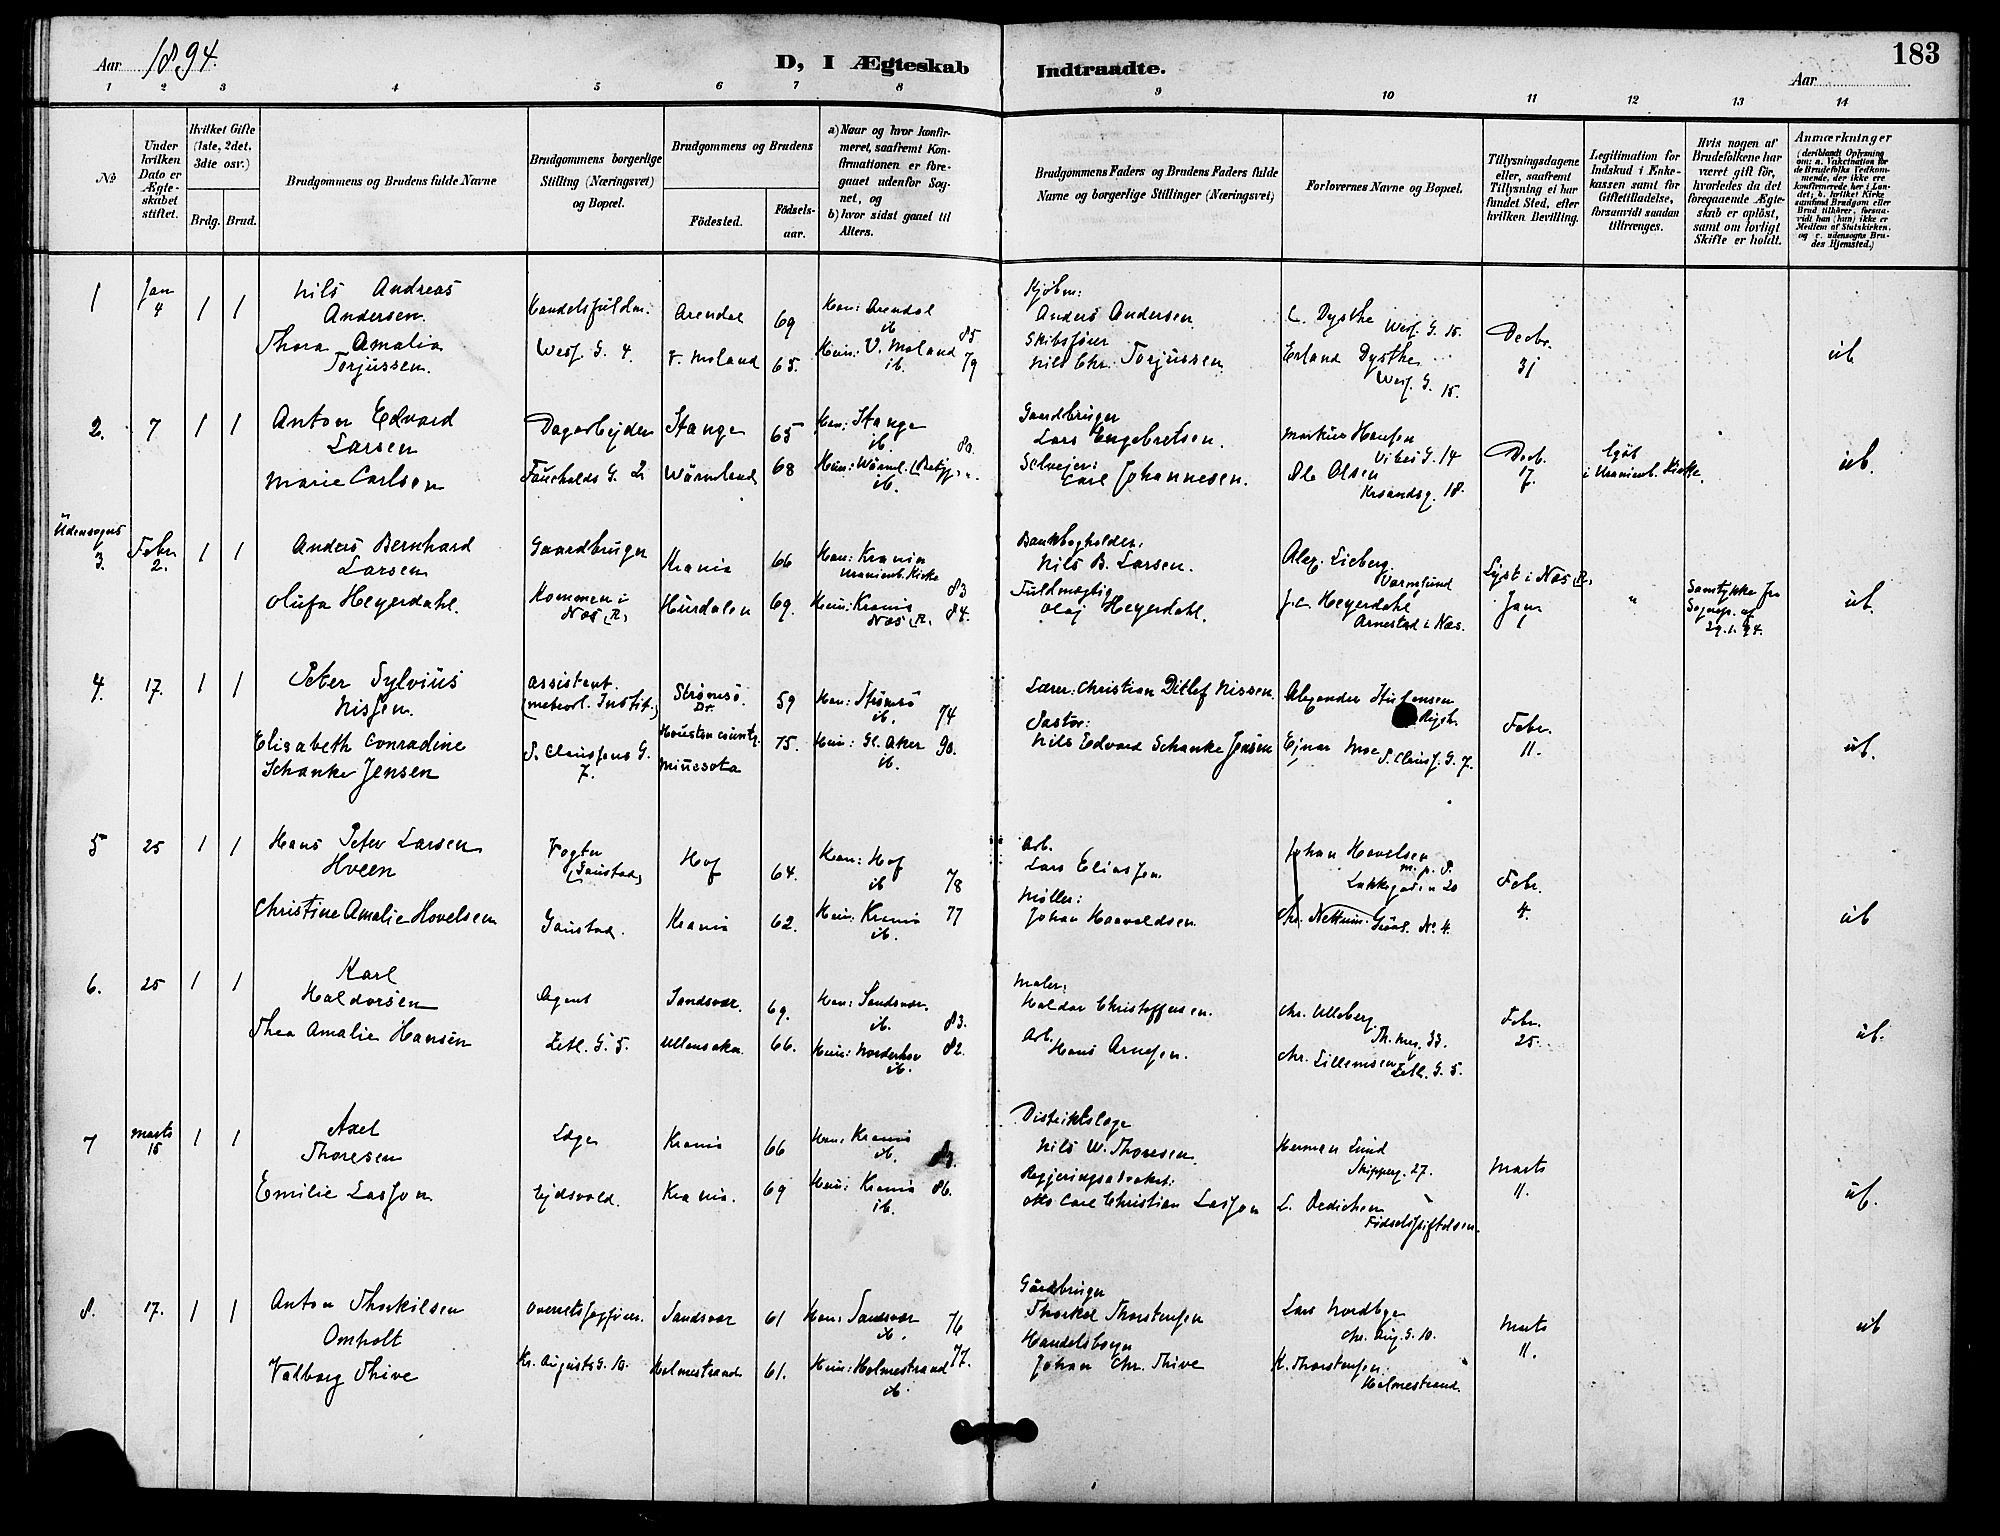 Aar 1894.
D, I Ægteskab Indtraadte.
183
Aar
1 2 3 4 5 6 7 8 9 10 11 12 13 14
№
Under hvilken Dato er Ægteskabet stiftet.
Hvilket Gifte (1ste, 2det, 3die osv.)
Brdg. Brud.
Brudgommens og Brudens fulde Navne
Brudgommens borgerlige Stilling (Næringsvei) og Bopæl.
Brudgommens og Brudens
Födested.
Födselsaar.
a) Naar og hvor konfirmeret, saafremt Konfirmationen er foregaaet udenfor Sognet, og
b) hvor sidst gaaet til Alters.
Brudgommens Faders og Brudens Faders fulde Navne og borgerlige Stillinger (Næringsvei)
Forlovernes Navne og Bopæl.
Tillysningsdagene eller, saafremt Tillysning ei har fundet Sted, efter hvilken Bevilling.
Legitimation for Indskud i Enkekassen samt for Giftetilladelse, forsaavidt saadan tiltrænges.
Hvis nogen af Brudefolkene har været gift før, hvorledes da det foregaaende Ægteskab er oplöst, samt om lovligt Skifte er holdt.
Anmærkninger
(deriblandt Oplysning om: a. Vakcination for de Brudefolks Vedkommende, der ikke ere konfirmerede her i Landet; b. hvilket Kirkesamfund Brudgom eller Brud tilhörer, forsaavidt han (hun) ikke er Medlem af Statskirken, og c. udensogns Brudes Hjemsted.)
1 Jan 4 1 1
Nils Andreas Andersen.
Thora Amalia Torjussen.
Wesf. G. 4.
Arendal 69
V. Moland 65.
Han: Arendal ib. 85
Hun: V. Moland ib. 79
Kjøbm: Anders Andersen
Skibsfører Nils Chr. Torjussen
C. Dysthe Wesf. G. 15.
Erland Dysthe Wesf. G. 15.
Decbr. 31
ub
2. 7 1 1
Anton Edvard Larsen
Marie Carlsen
Dagarbejder
Fauchalds G. 2
Stange 65
Wärmland 68
Han: Stange ib. 80.
Hun: Wärml. ib.
Gaardbruger Lars Engebretsen.
Selvejer: Carl Johannesen.
Markus Hansen Vibes G. 14
Ole Olsen Krsandsg. 18.
Decb. 17.
i Uranienb. Kirke.
ub.
Udensogns
3. Febr 2. 1 1
Anders Bernhard Larsen
Olufa Heyerdahl.
Gaardbruger
Kommen i Næs (R)
Krania 66
Hurdalen 69.
Han: Krania Uranienb. Kirke 83
Hun: Krania Næs (R). 84.
Bankbogholder: Nils B. Larsen.
Fuldmægtig Olaj Heyerdahl.
Alex. Lieberg.
J. C. Heyerdahl Arnestad i Næs.
Lyst i Næs R. Jan 1
"
Samtykke fra Sognepr. af 29.1.94.
ub.
4. 17. 1 1
Peter Sylvius Nissen.
Elisabeth Conradine Schanke Jensen
Assistent. (meteorl. Instit.)
P. Claussens G. 7.
Strømsø Dr. 59
Houston county Minnesota 75.
Han: Strømsø ib. 74
Hun: Gl. Aker ib. 90.
Lærer: Christian Ditlef Nissen
Pastor: Nils Edvard Schanke Jensen
Alexander
Ejnar Moe P. Clausf. G. 7.
Febr. 11.
ub.
5 25 1 1
Hans Peter Larsen Hveen
Christine Amalie Hovelsen
Vogter (Gaustad)
Gaustad.
Hof 64.
Krania 62.
Han: Hof ib 78
Hun: Krania ib. 77
Arb. Lars Eliassen
Møller: Johan Haavaldsen.
Johan Hovelsen m. p. P. Lakkegaden 20
Chr. Nettum. No. 4.
Febr. 4.
ub
6. 25 1 1
Karl Haldorsen
Thea Amalie Hansen
Agent
Zetl. G. 5.
Sandsvær. 69.
Ullensaker 66.
Han: Sandsvær. ib. 83.
Hun: Norderhov ib. 82.
Maler: Haldor Christoffersen.
Arb. Hans Arnesen.
Chr. Ulleberg Th. Mey. 33.
Chr. Lillemsen Zetl. G. 5.
Febr. 25.
ub.
7 Marts 15 1 1
Axel Thoresen
Emilie Lasson
Læge
Ejdsvold.
Krania 66
Krania. 69
Han: Krania ib.
Hun: Krania ib. 86.
Distriktslæge Nils W. Thoresen.
Regjeringsadvokat: Otto Carl Christian Lasson
Herman Lund Skipperg. 27.
L. Dedichen Fødselsstiftelsen.
Marts 11.
ub.
8. 17. 1 1
Anton Thorkilsen Omholt
Valborg Thive
Overretssagfører.
Kr. Augusts G. 10.
Sandsvær 61
Holmestrand 61.
Han: Sandsvær ib. 76
Hun: Holmestrand ib. 77.
Gårdbruger Thorkel Thorstensen
Handelsborger Johan Chr. Thive
Lars Nordbye Chr. Aug. G. 10.
K. Thorstensen. Holmestrand.
Marts 11.
ub